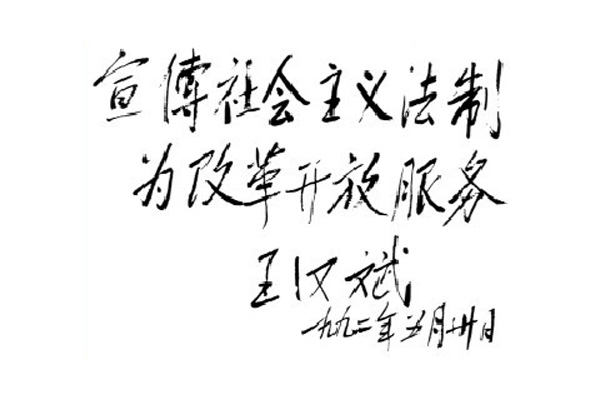 宣傳社会主义法制
为改革开放服务
王汉斌
一九九二年五月卅日